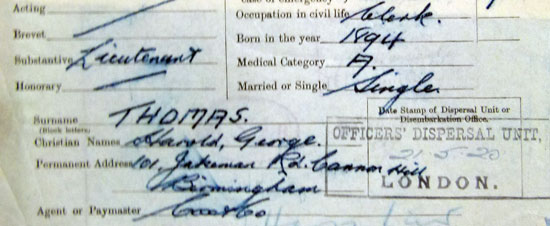 Case of emergency
Acting
Occupation in civil life Clerk.
Brevet
Born in the year 1894
Substantive Lieutenant
Medical Category A.
Honorary
Married or Single Single
Surname THOMAS.
(Block letters)
Christian Names Harold, George.
Permanent Address 101, Jakeman Rd. Cannon Hill
Birmingham
Agent or Paymaster Cox & Co
Date Stamp of Dispersal Unit or
Disembarkation Office.
OFFICERS' DISPERSAL UNIT,
21-5-20
LONDON.